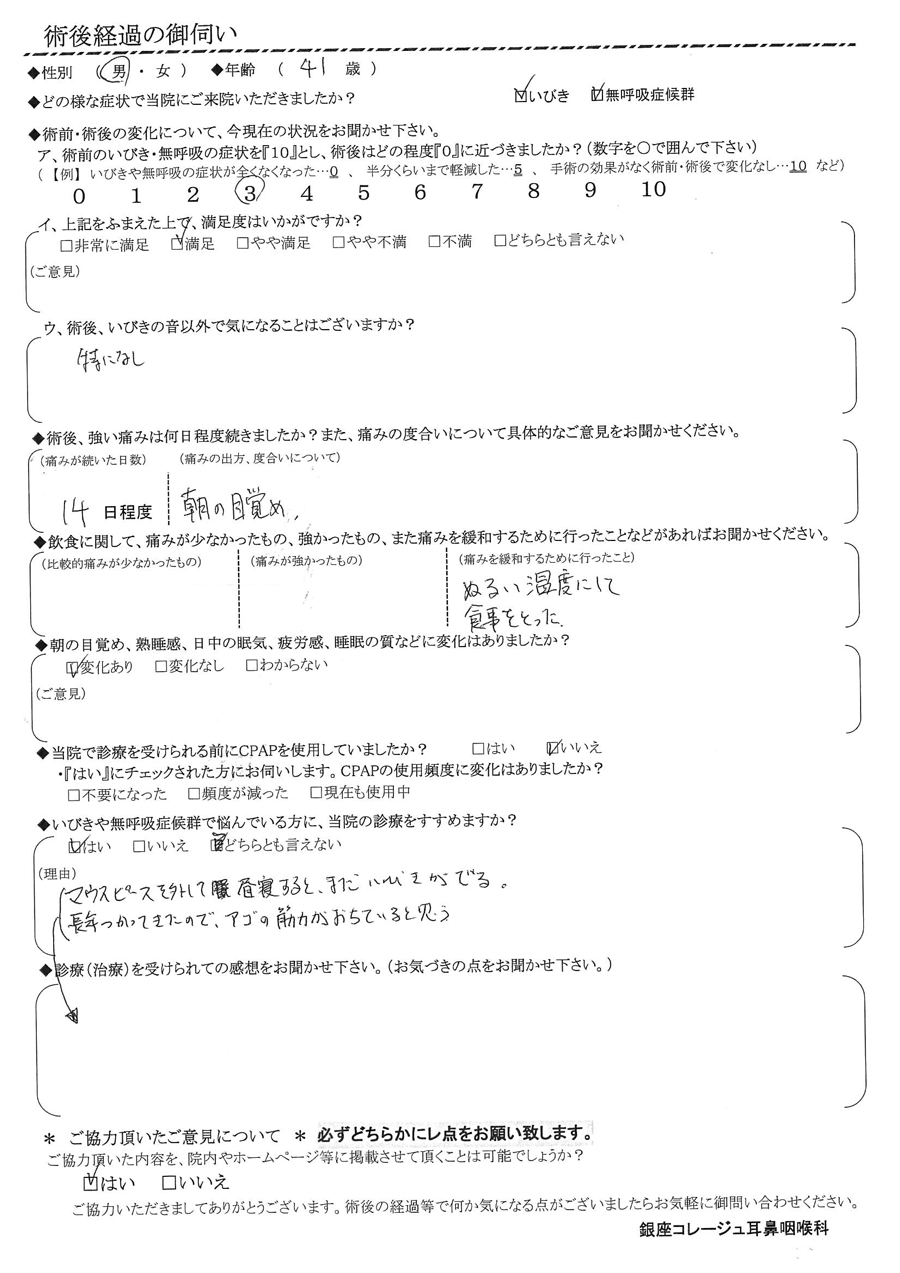 術後経過の御伺い
◆性別 （ 男 ・ 女 ） ◆年齢 （ 41 歳 ）
◆どの様な症状で当院にご来院いただきましたか？ ☑いびき ☑無呼吸症候群
◆術前・術後の変化について、今現在の状況をお聞かせ下さい。
ア、術前のいびき・無呼吸の症状を『10』とし、術後はどの程度『0』に近づきましたか？（数字を〇で囲んで下さい）
（ 【例】 いびきや無呼吸の症状が全くなくなった…0 、 半分くらいまで軽減した…5 、 手術の効果がなく術前・術後で変化なし…10 など）
0 1 2 3 4 5 6 7 8 9 10
イ、上記をふまえた上で、満足度はいかがですか？
□非常に満足 ☑満足 □やや満足 □やや不満 □不満 □どちらとも言えない
（ご意見）
ウ、術後、いびきの音以外で気になることはございますか？
特になし
◆術後、強い痛みは何日程度続きましたか？また、痛みの度合いについて具体的なご意見をお聞かせください。
（痛みが続いた日数） （痛みの出方、度合いについて）
14 日程度 朝の目覚め、
◆飲食に関して、痛みが少なかったもの、強かったもの、また痛みを緩和するために行ったことなどがあればお聞かせください。
（比較的痛みが少なかったもの） （痛みが強かったもの） （痛みを緩和するために行ったこと）
ぬるい温度にして
食事をとった.
◆朝の目覚め、熟睡感、日中の眠気、疲労感、睡眠の質などに変化はありましたか？
☑変化あり □変化なし □わからない
（ご意見）
◆当院で診療を受けられる前にCPAPを使用していましたか？ □はい ☑いいえ
・『はい』にチェックされた方にお伺いします。CPAPの使用頻度に変化はありましたか？
□不要になった □頻度が減った □現在も使用中
◆いびきや無呼吸症候群で悩んでいる方に、当院の診療をすすめますか？
☑はい □いいえ ☑どちらとも言えない
（理由）
マウスピースを外して 昼寝すると、まだいびきがでる。
長年つかってきたので、アゴの筋力がおちていると思う
◆診療（治療）を受けられての感想をお聞かせ下さい。（お気づきの点をお聞かせ下さい。）
＊ ご協力頂いたご意見について ＊ 必ずどちらかにレ点をお願い致します。
ご協力頂いた内容を、院内やホームページ等に掲載させて頂くことは可能でしょうか？
☑はい □いいえ
ご協力いただきましてありがとうございます。術後の経過等で何か気になる点がございましたらお気軽に御問い合わせください。
銀座コレージュ耳鼻咽喉科